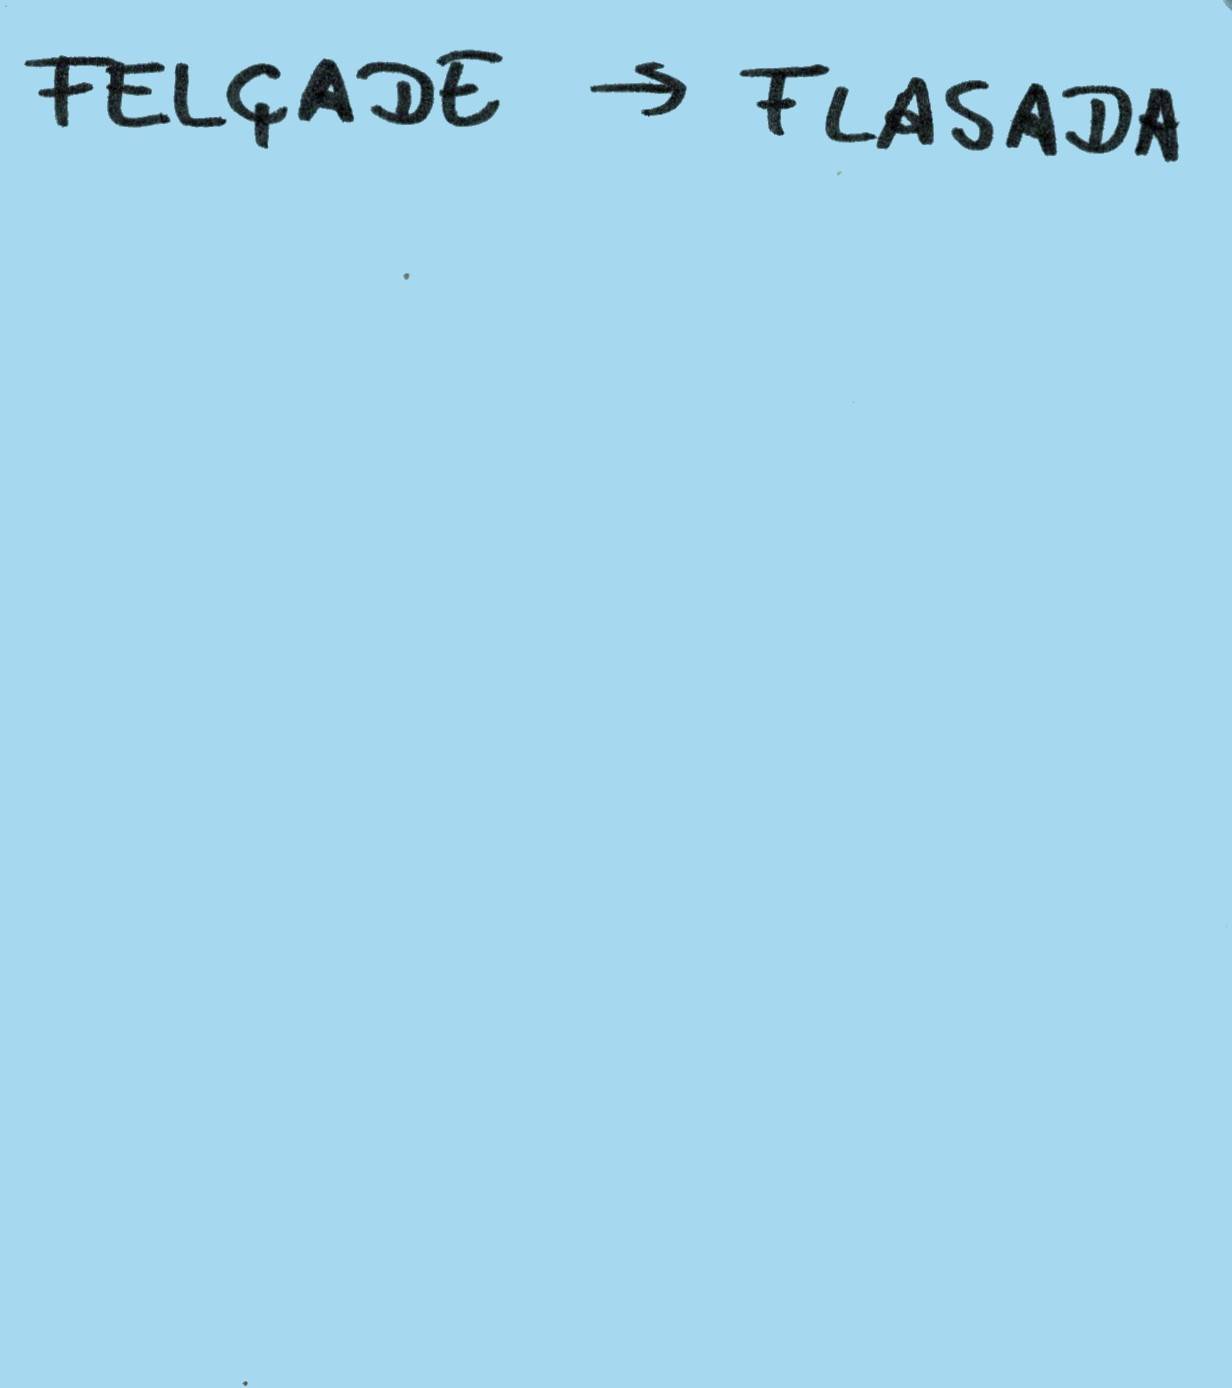 FELÇADE → FLASADA